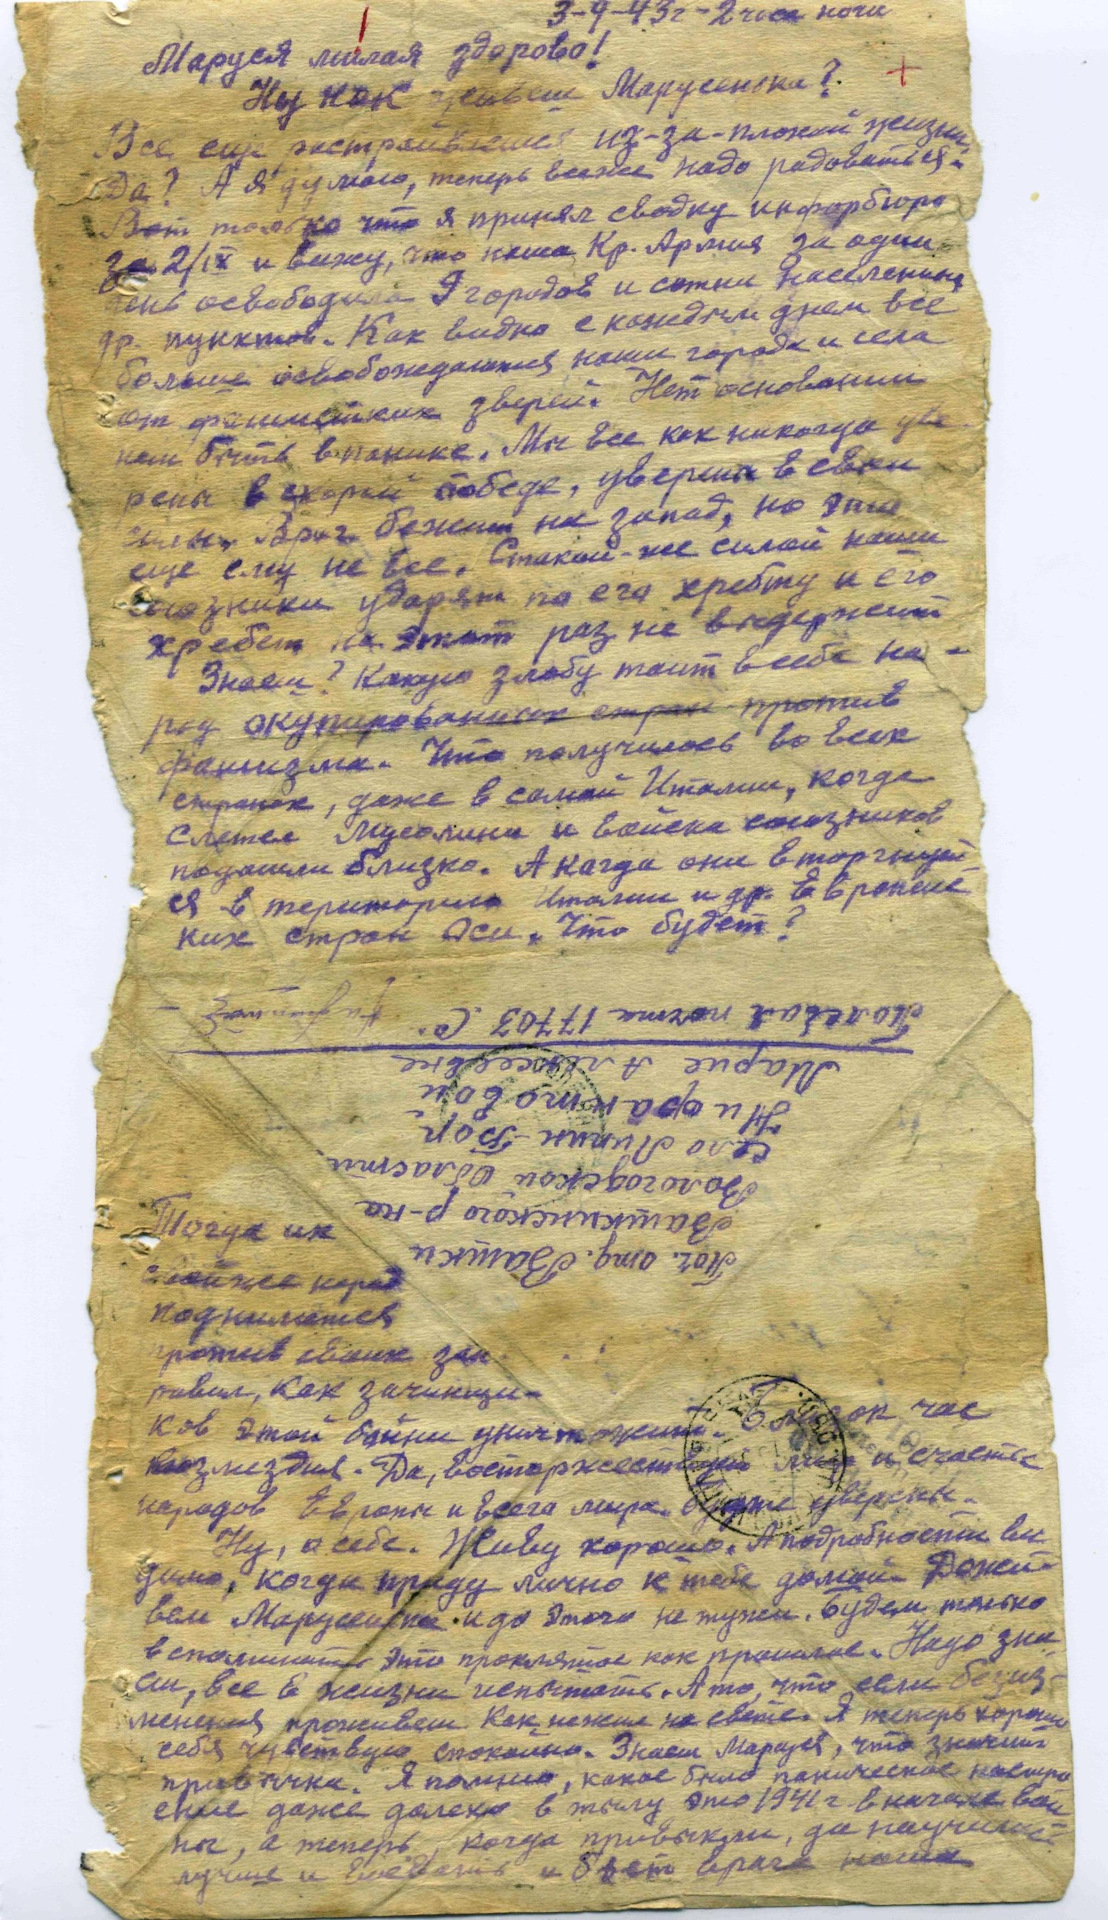 3-9-43г - 2 часа ночи
Маруся милая здорово!
Ну как живеш Марусенька?
Все еще растраиваешся из-за-плохой жизни,
Да? А я думаю, теперь всеже надо радоваться.
Вот только что я принял сводку информбюро
за 2/IX и вижу, что наша Кр. Армия за один
день освободила 9 городов и сотни населенны
др. пунктов. Как видно с каждым днем все
больше освобождаются наши города и села
от фашистких зверей. Нет основании
нам быть в панике. Мы все как никогда уве-
рены в скорой победе, уверены в свои
силы. Враг бежит на запад, но это
еще ему не все. Стакой-же силой наши
союзники ударят по его хребту и его
хребет на этот раз не выдержит
Знаеш? Какую злобу таит в себе на-
род окупированных стран против
фашизма. Что получилось во всех
странах, даже в самой Италии, когда
слетел Мусолини и войска союзников
подошли близко. А когда они вторгнут
ся в територию Италии и др. Европейс
ких стран Оси. Что будет?
Полевая почта 17703 "С"
Марие Алексеевне
село Липин-Бор
Вологодской области
Вашкинского р-на
Поч. отд. Вашки
Тогда их
свойже народ
подниматся
против своих зап
равил, как зачинщи-
ков этой бойни уничтожит. Близок час
возмездия. Да, восторжествует мир и счастье
народов Европы и всего мира. Будте уверены.
Ну, о себе. Живу хорошо. А подробности ви
димо, когда приду лично к тебе домой. Дожи-
вем Марусенька и до этого не тужи. Будем только
вспоминать это проклятое как прошлое. Надо зна
еш, все в жизни испытать. А то, что если без из-
менения проживеш как нежил на свете. Я теперь хорошо
себя чувствую спокойно. Знаеш Маруся, что значит
привычка. Я помню, какое было паническое настро
ение даже далеко в тылу это 1941 г в начале вой
ны, а теперь, когда привыкли, да научились
лучше и воевать и бьет врага наша